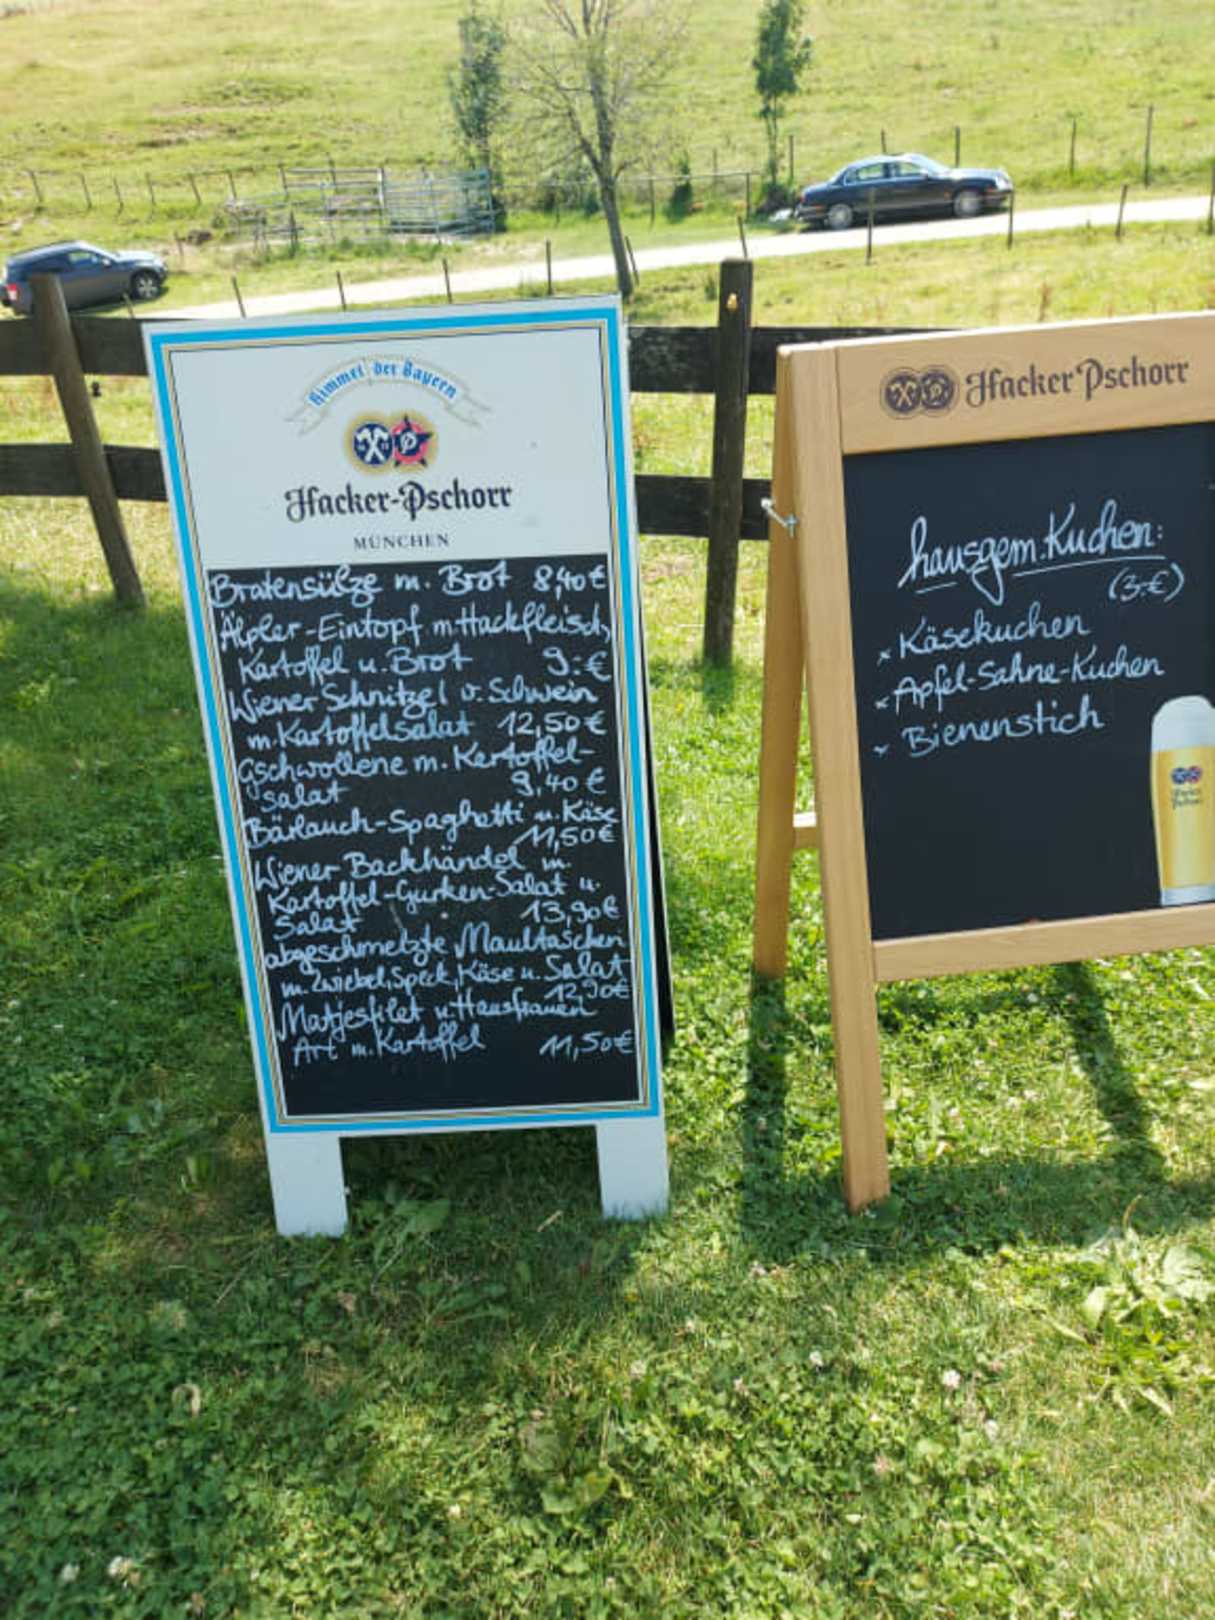 Himmel der Bayern
Hacker-Pschorr
MÜNCHEN
Bratensülze m. Brot 8,40€
Älpler-Eintopf m Hackfleisch,
Kartoffel u. Brot 9.-€
Wiener Schnitzel v. Schwein
m. Kartoffelsalat 12,50€
Gschwollene m. Kartoffel-
salat 9,40 €
Bärlauch-Spaghetti u. Käse
11,50€
Wiener Backhändel m.
Kartoffel-Gurken-Salat u.
Salat 13,90€
abgeschmelzte Maultaschen
m. Zwiebel, Speck, Käse u. Salat
12,90€
Matjesfilet n. Hausfrauen
Art m. Kartoffel 11,50€
Hacker Pschorr
hausgem. Kuchen:
(3.-€)
x Käsekuchen
x Apfel-Sahne-Kuchen
x Bienenstich